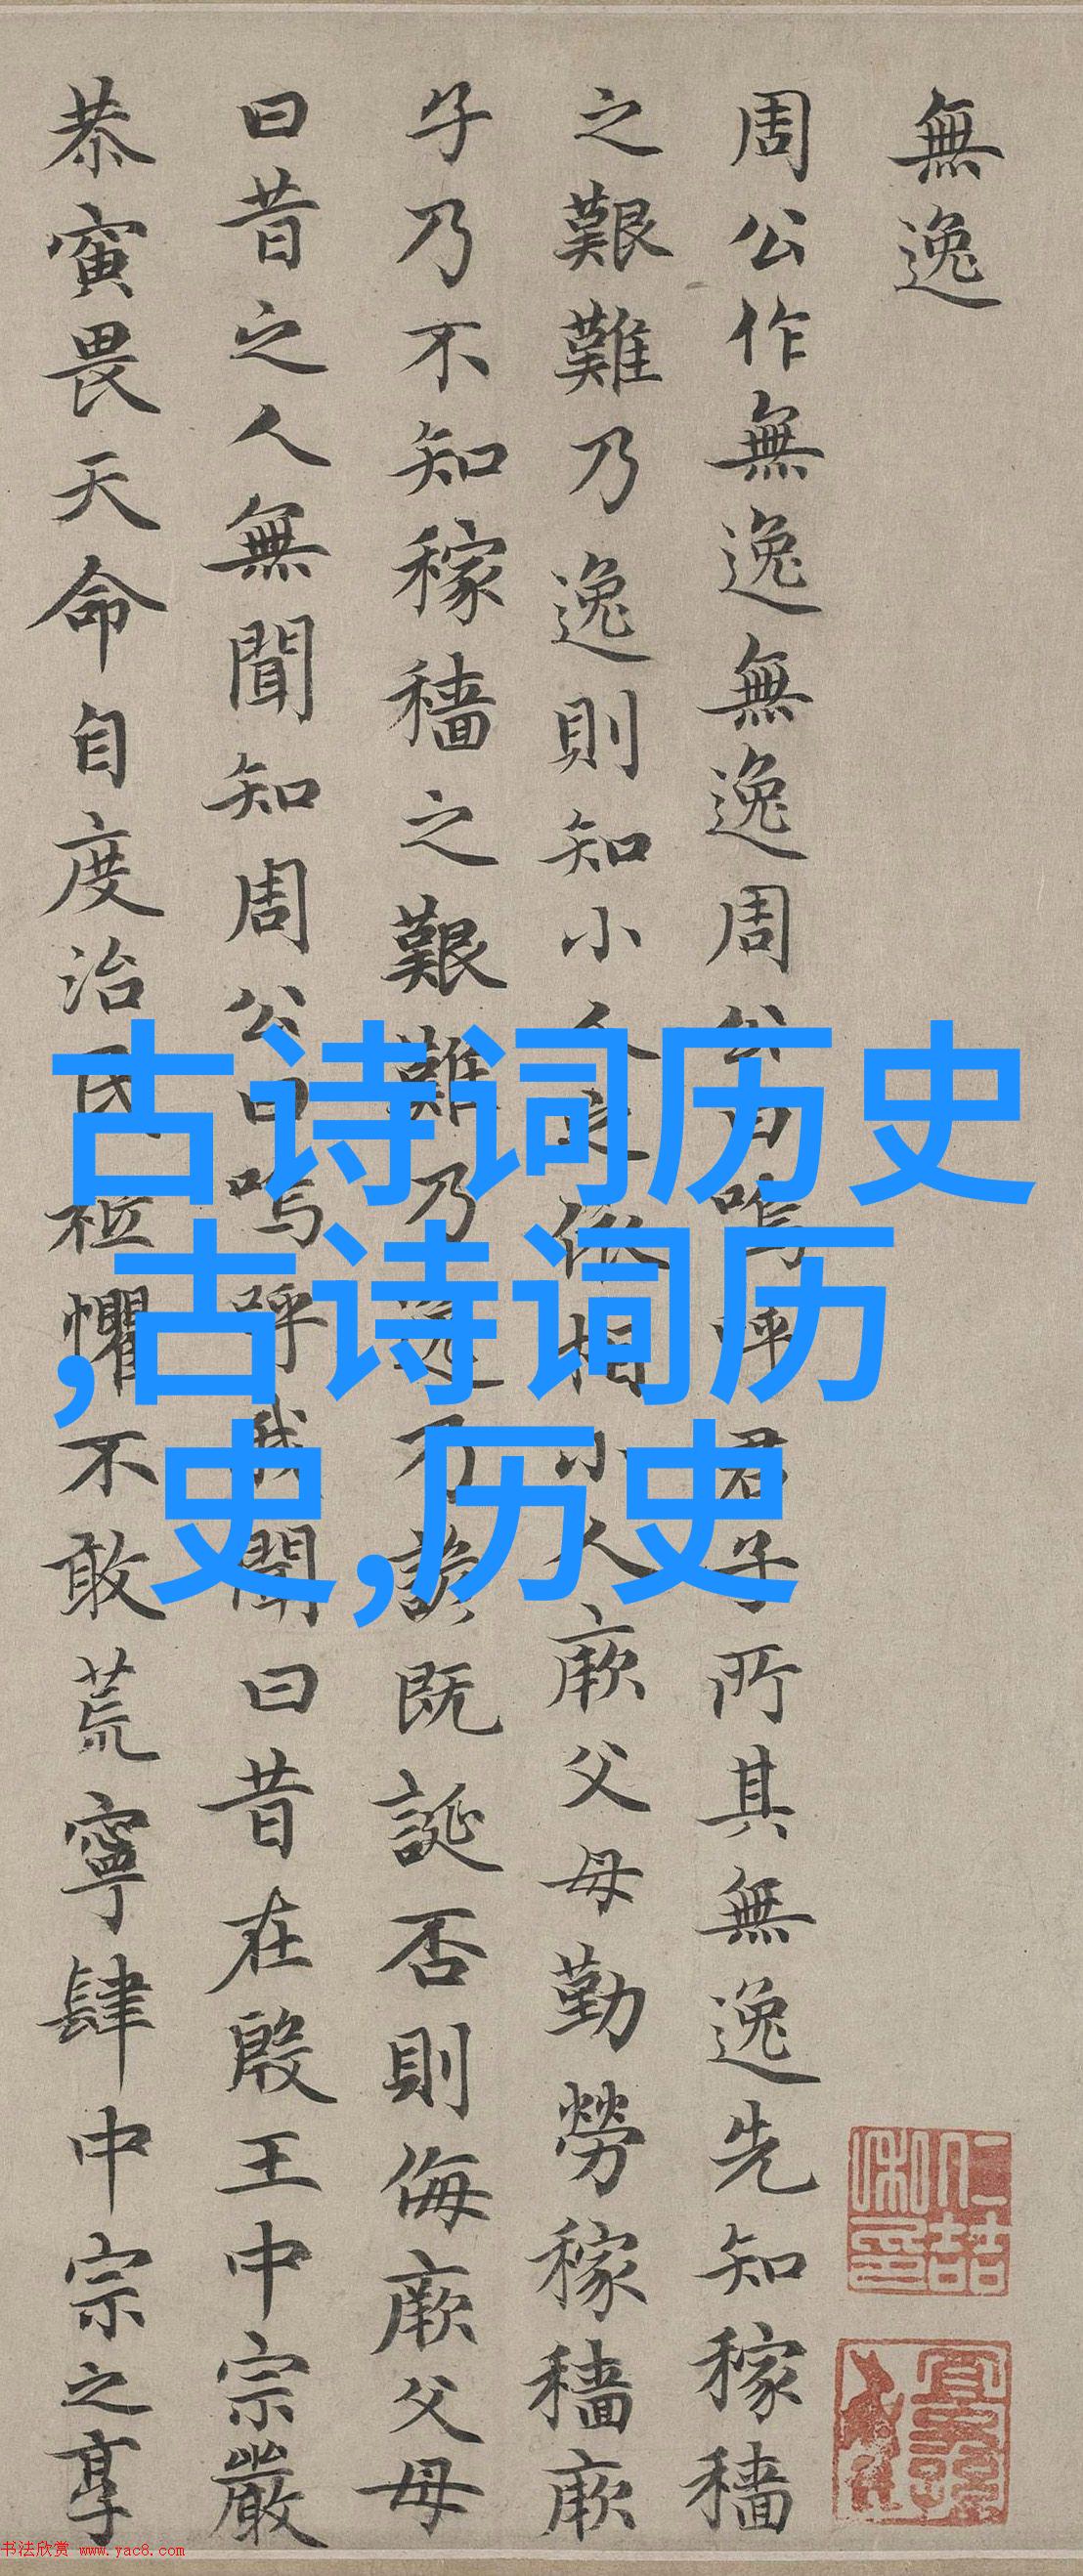 無逸
周公作無逸無逸周公曰嗚呼君子所其無逸先知稼穡
之艱難乃逸則知小人之依相小人厥父母勤勞稼穡厥
子乃不知稼穡之艱難乃逸乃諺既誕否則侮厥父母
曰昔之人無聞知周公曰嗚呼我聞曰昔在殷王中宗嚴
恭寅畏天命自度治民祗懼不敢荒寧肆中宗之享
古诗词历史
,古诗词历
史,历史
书法欣赏 www.yac8.com